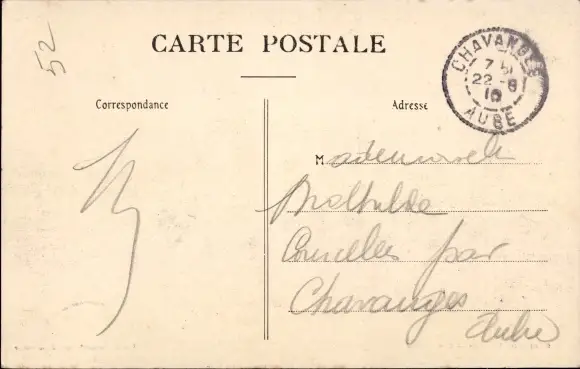 52
CARTE POSTALE
Correspondance
Adresse
CHAVANGES
7
22 -8
10
AUBE
Mademoiselle
Mathilde
Courcelles par
Chavanges
Aube